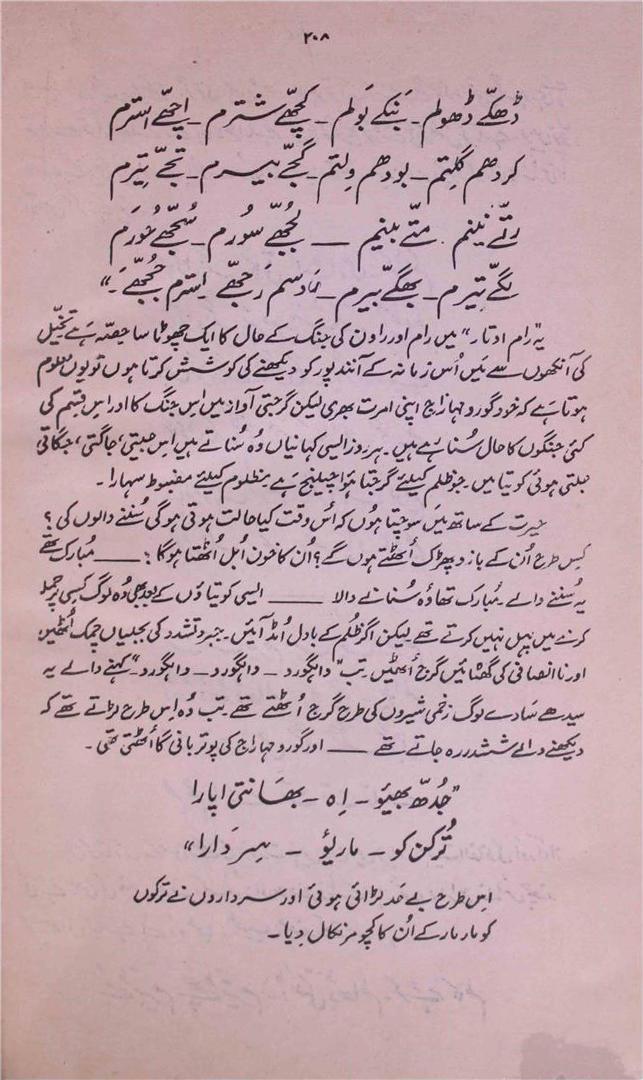 ۲۰۸
ڈھکّے ڈھولم ۔ بَنکے بَولم ۔ کچھّے شترم ۔ اچھّے استرم
کردھم گلِتم ۔ بودھم دِلتم ۔ گجّے بیسرم ۔ تجّے تیرم
رتّے نینم ۔ متّے بینم ــــ لُجھّے سُورم ۔ سُجھّے حُورم
لگّے تیرم ۔ بھگّے بیرم ۔ رَجھّے اِسترم جُجھّے ۔"
یہ "رام اوتار" میں رام اور راون کی جنگ کے حال کا ایک چھوٹا سا حِصّہ ہے تخیّل
کی آنکھوں سے مَیں اُس زمانہ کے آنند پور کو دیکھنے کی کوشش کرتا ہوں تو یوں معلوم
ہوتا ہے کہ خود گورو مہاراج اپنی امرت بھری لیکن گرجتی آواز میں اس جنگ کا اور اس قسم کی
کئی جنگوں کا حال سُنا رہے ہیں۔ ہر روز ایسی کہانیاں وُہ سُناتے ہیں اس جیتی، جاگتی، جگاتی
جلتی ہوئی کویتا میں۔ جو ظلم کیلئے گرجتا ہؤا چیلنج ہے۔ مظلوم کیلئے مضبوط سہارا۔
حیرت کے ساتھ مَیں سوچتا ہُوں کہ اُس وقت کیا حالت ہوتی ہوگی سُننے والوں کی؟
کِس طرح اُن کے بازو پھڑک اُٹھتے ہوں گے؟ اُن کا خون اُبل اُٹھتا ہوگا؟ ــــ مُبارک تھے
یہ سُننے والے۔ مُبارک تھا وُہ سُنانے والا ــــ ایسی کویتاؤں کے بعد بھی وُہ لوگ کسی پر حملہ
کرنے میں پہل نہیں کرتے تھے لیکن اگر ظُلم کے بادل اُمڈ آئیں۔ جبر و تشدد کی بجلیاں چمک اُٹھیں
اور ناانصافی کی گھٹائیں گرج اُٹھیں۔ تب "واہگورو ۔ واہگورو ۔ واہگورو" کہنے والے یہ
سیدھے سادے لوگ زخمی شیروں کی طرح گرج اُٹھتے تھے۔ تب وُہ اِس طرح لڑاتے تھے کہ
دیکھنے والے ششدر رہ جاتے تھے ــــ اور گورو مہاراج کی پوتر بانی گا اُٹھتی تھی۔
"جُدھّ بھیئو ۔ اِہ ۔ بھانتی اپارا
تُرکن کو ۔ ماریؤ ۔ سِردارا"
اِس طرح بے حد لڑائی ہوئی اور سرداروں نے ترکوں
کو مار مار کے اُن کا کچومر نکال دِیا۔